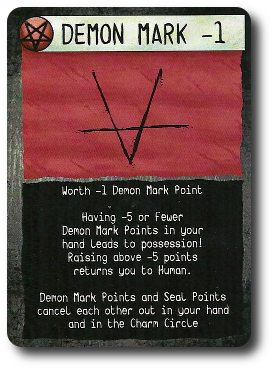 DEMON MARK -1
Worth -1 Demon Mark Point
Having -5 or Fewer
Demon Mark Points in your
hand leads to possession!
Raising above -5 points
returns you to Human.
Demon Mark Points and Seal Points
cancel each other out in your hand
and in the Charm Circle